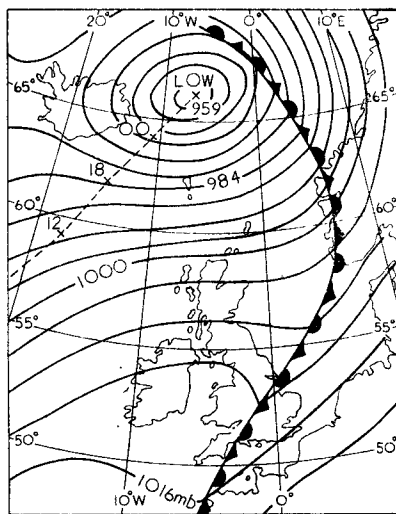 20° 10°W 0° 10°E
LOW
65° 1 265°
959
00
18
984
60° 60°
12
1000
55° 55°
50° 50°
1016mb
10°W 0°